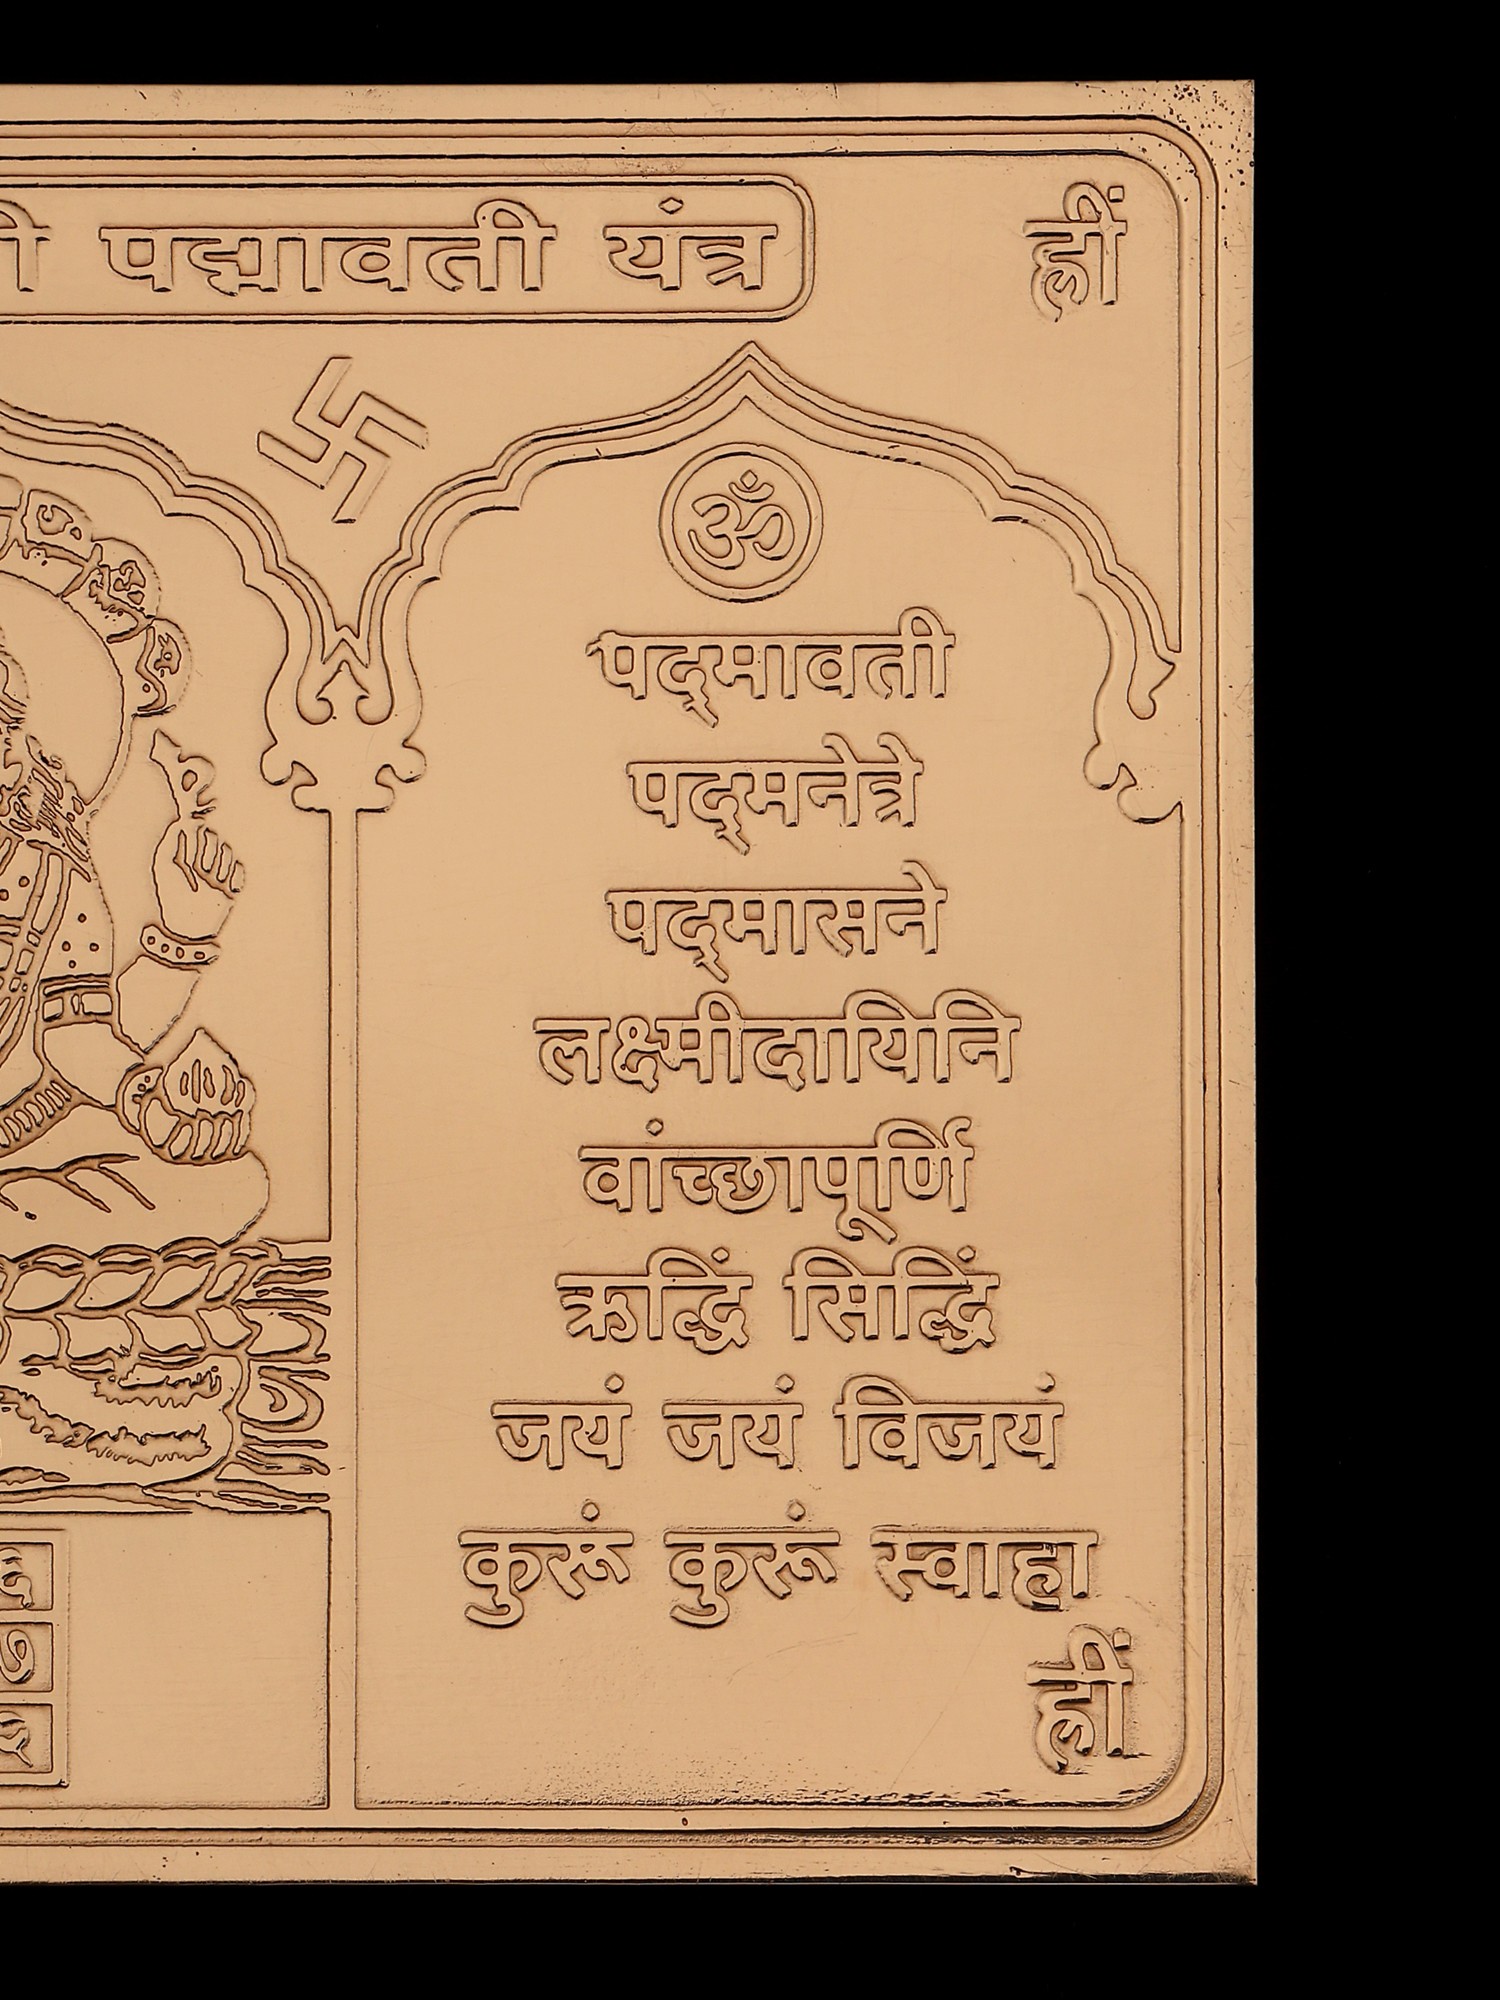 पद्मावती यंत्र
ह्रीं
ॐ
पद्‌मावती
पद्‌मनेत्रे
पद्‌मासने
लक्ष्मीदायिनि
वांच्छापूर्णि
ऋद्धिं सिद्धिं
जयं जयं विजयं
कुरूं कुरूं स्वाहा
ह्रीं
७